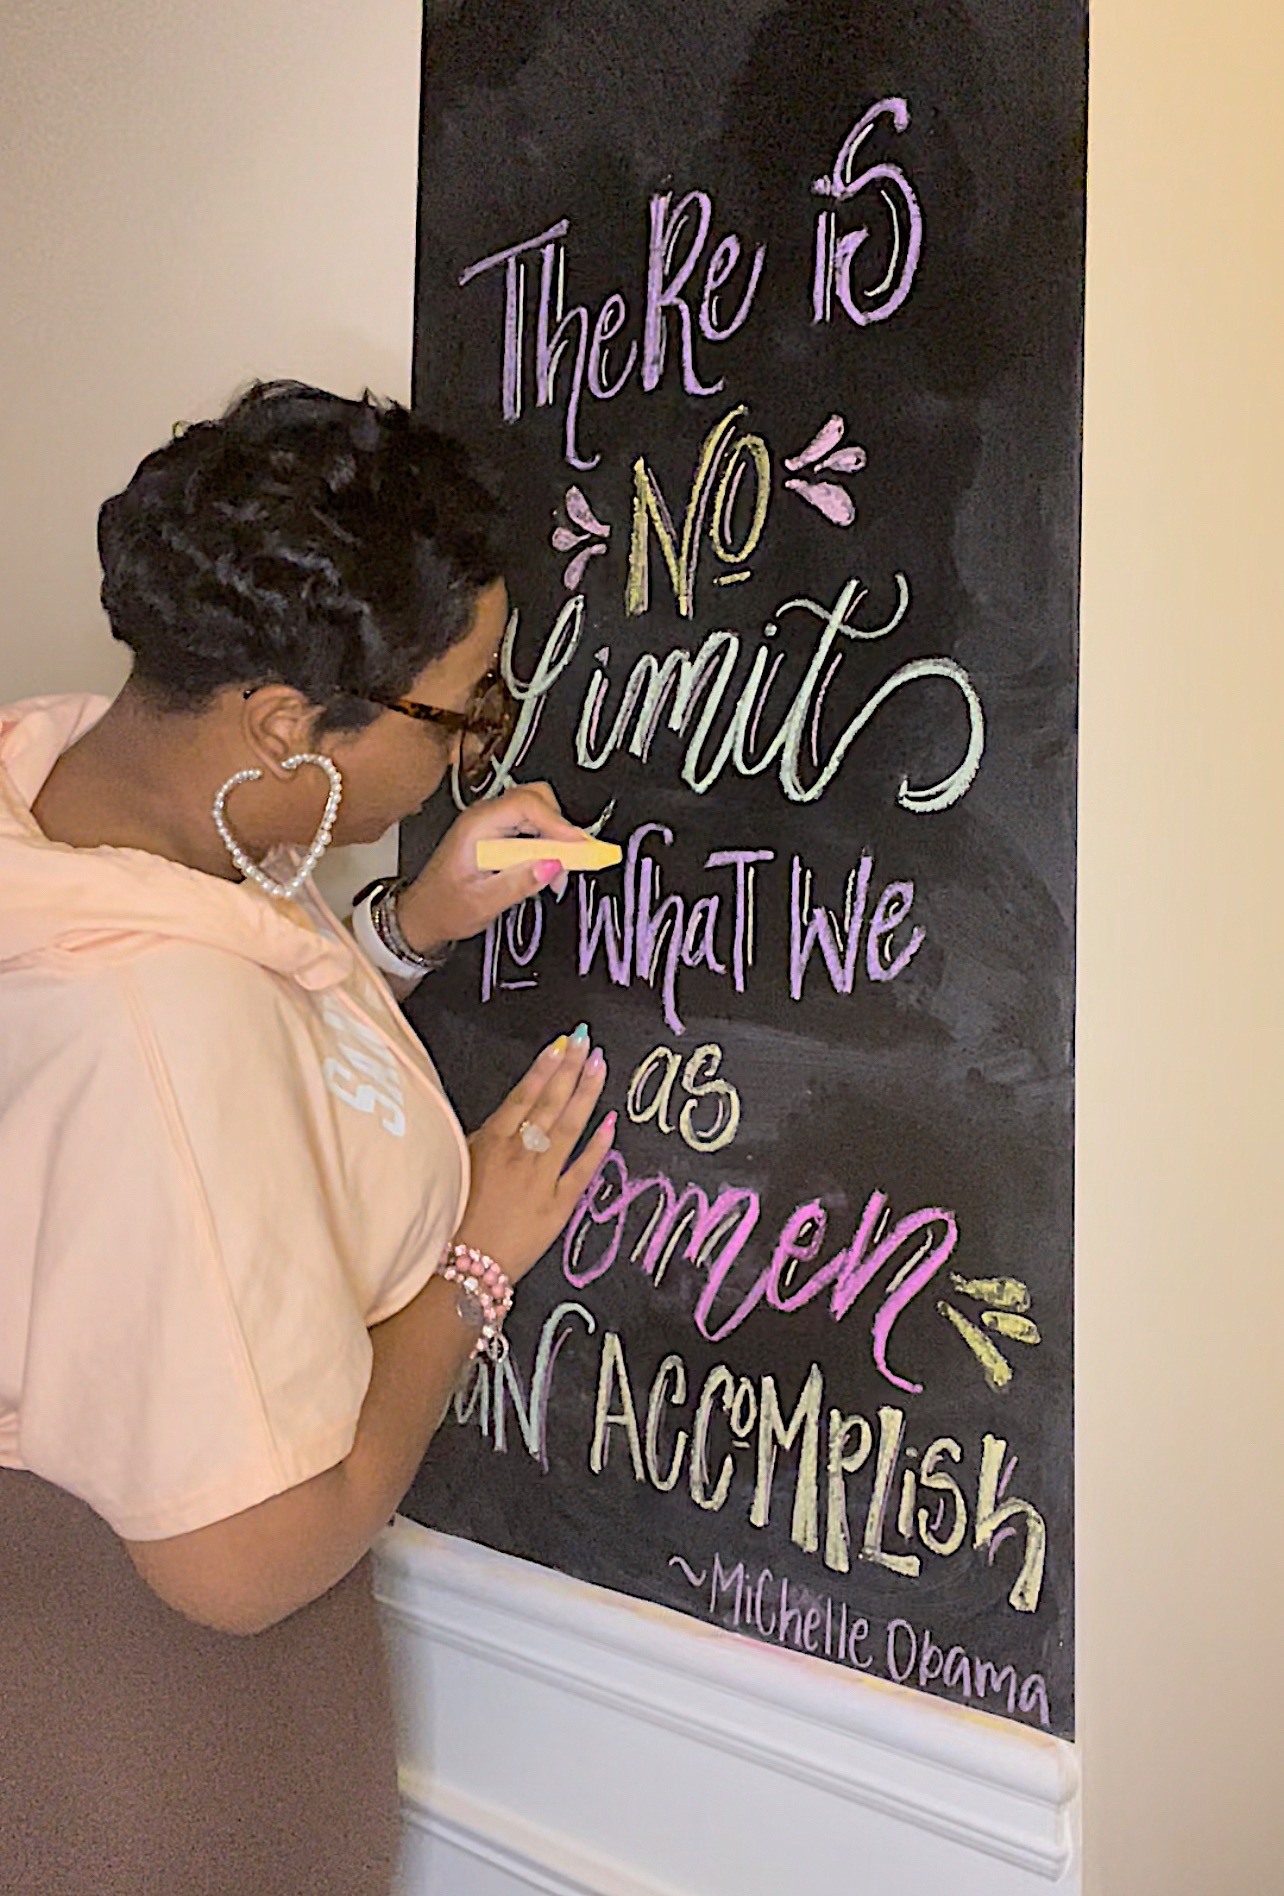 TheRe iS
No
Limit
To WhaT We
as
omen
aN AccoMPLiSh
~Michelle Obama